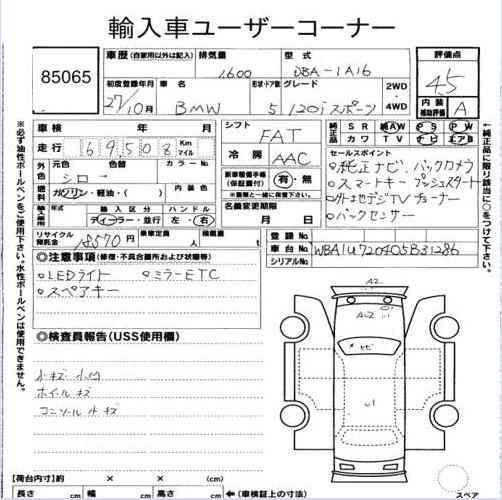 輸入車ユーザーコーナー
85065
車歴 (自家用以外は記入) 排気量 型式 評価点
1600 DBA-1A16 4.5
初度登録年月 車名 形状・ドア数 グレード 2WD・4WD 内装補助評価 A
27/10月 BMW 5 120i スポーツ
車検 年 月 シフト FAT 純正品 SR 純AW PS PW
カワ TV ナビ エアB
走行 69508 Km マイル 冷房 AAC
外色 元色 シロ 色替 カラーNo.
燃料 ガソリン・軽油・( ) 内装色
新車整備手帳(保証書付) 有・無
輸入車 年式 輸入区分 ディーラー・並行 ハンドル 左・右
名義変更期限 月 日
リサイクル預託金 18570円 乗車定員 人 積載量 t
セールスポイント
純正ナビ、バックカメラ
スマートキー プッシュスタート
地デジTVチューナー
バックセンサー
登録No.
車台No. WBA1U720405B31286
シリアルNo.
◎注意事項 (修復・不具合箇所および状態等)
LEDライト ミラーETC
スペアキー
◎検査員報告(USS使用欄)
小キズ 小凹
ホイールキズ
コンソール小キズ
A2
AU2
ナビ
U1
【荷台内寸】約 × × (cm)
長さ cm 幅 cm 高さ cm ←(車検証上の寸法)
スペア
※必ず油性ボールペンをご使用下さい。水性ボールペンは使用できません。
←純正品に限り該当に○をつけて下さい。